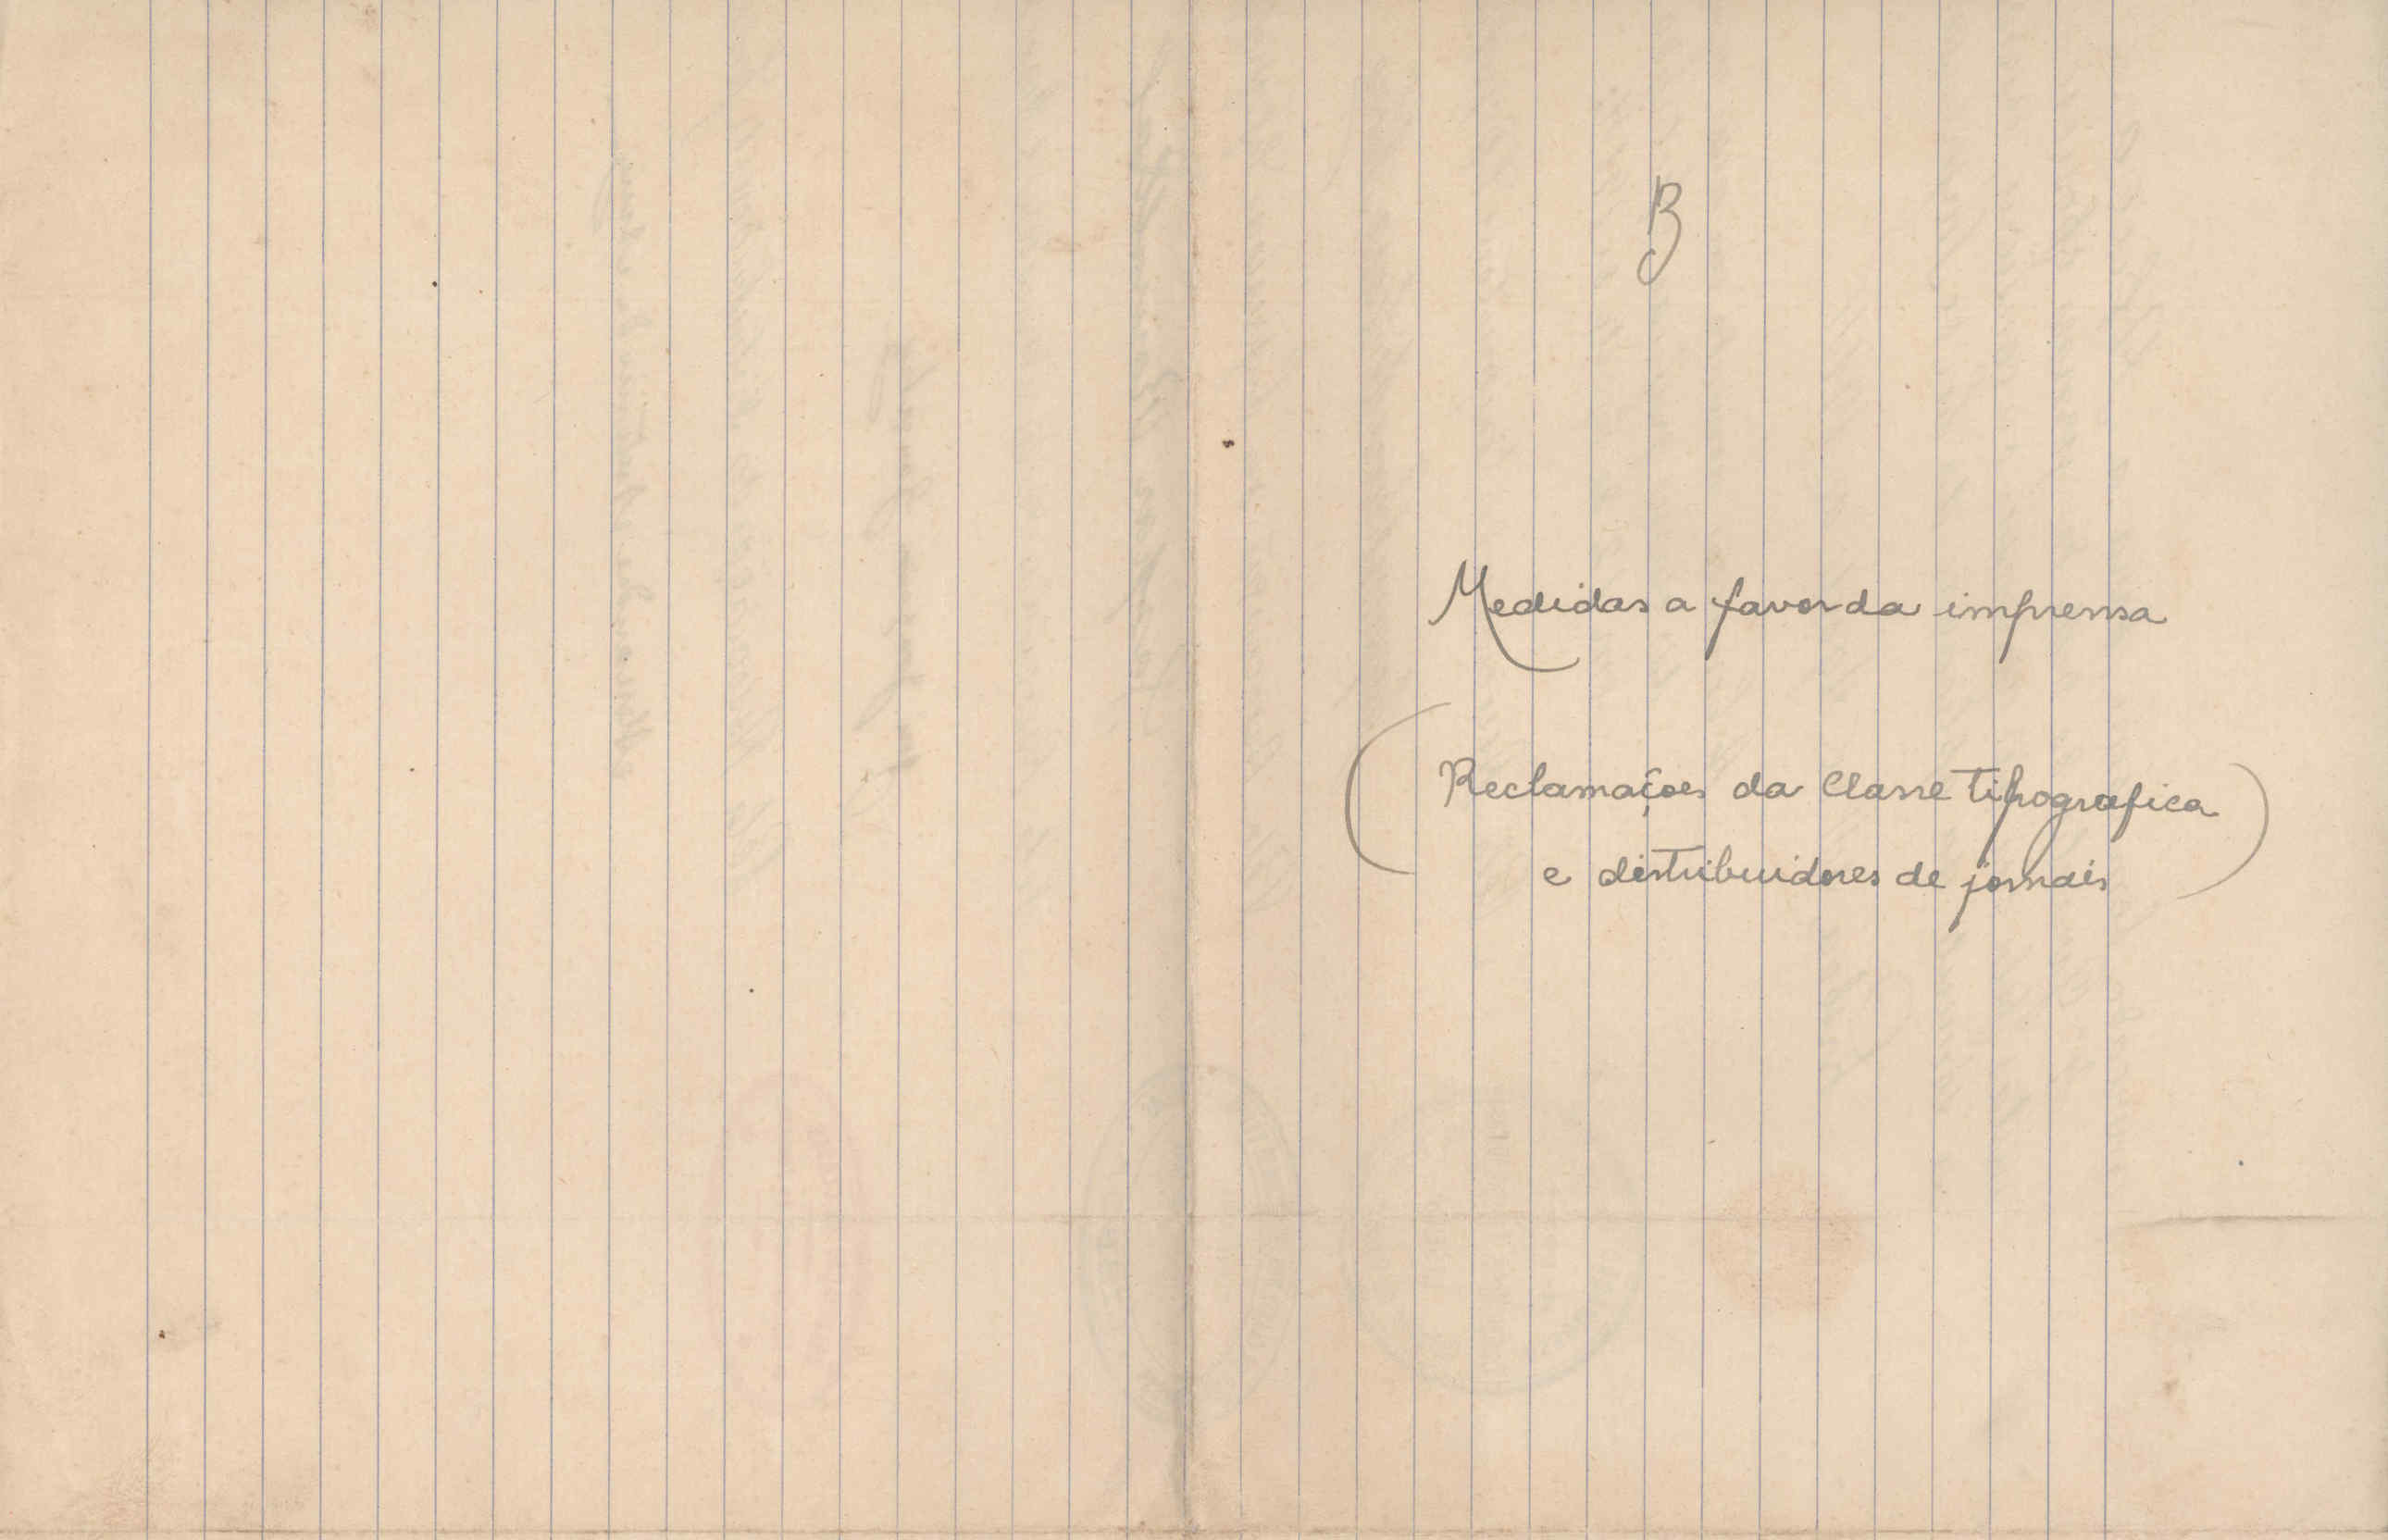 B
Medidas a favor da imprensa
(Reclamações da Classe tipografica
e distribuidores de jornais)